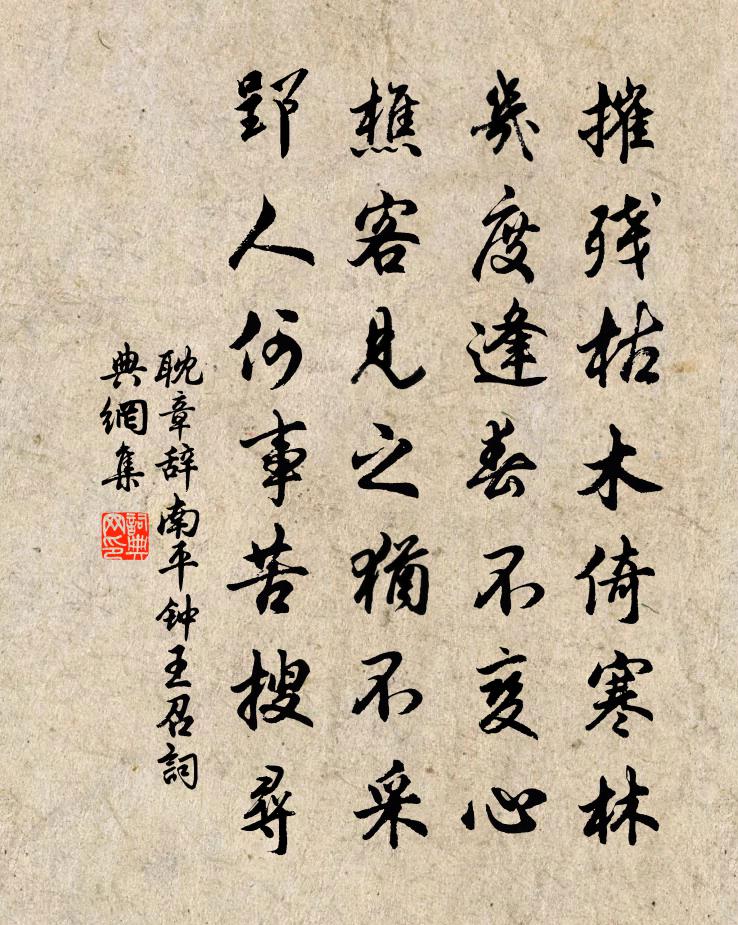 摧残枯木倚寒林
幾度逢春不变心
樵客見之猶不采
郢人何事苦搜尋
耽章辞南平钟王召詞
典網集
詞典
网印